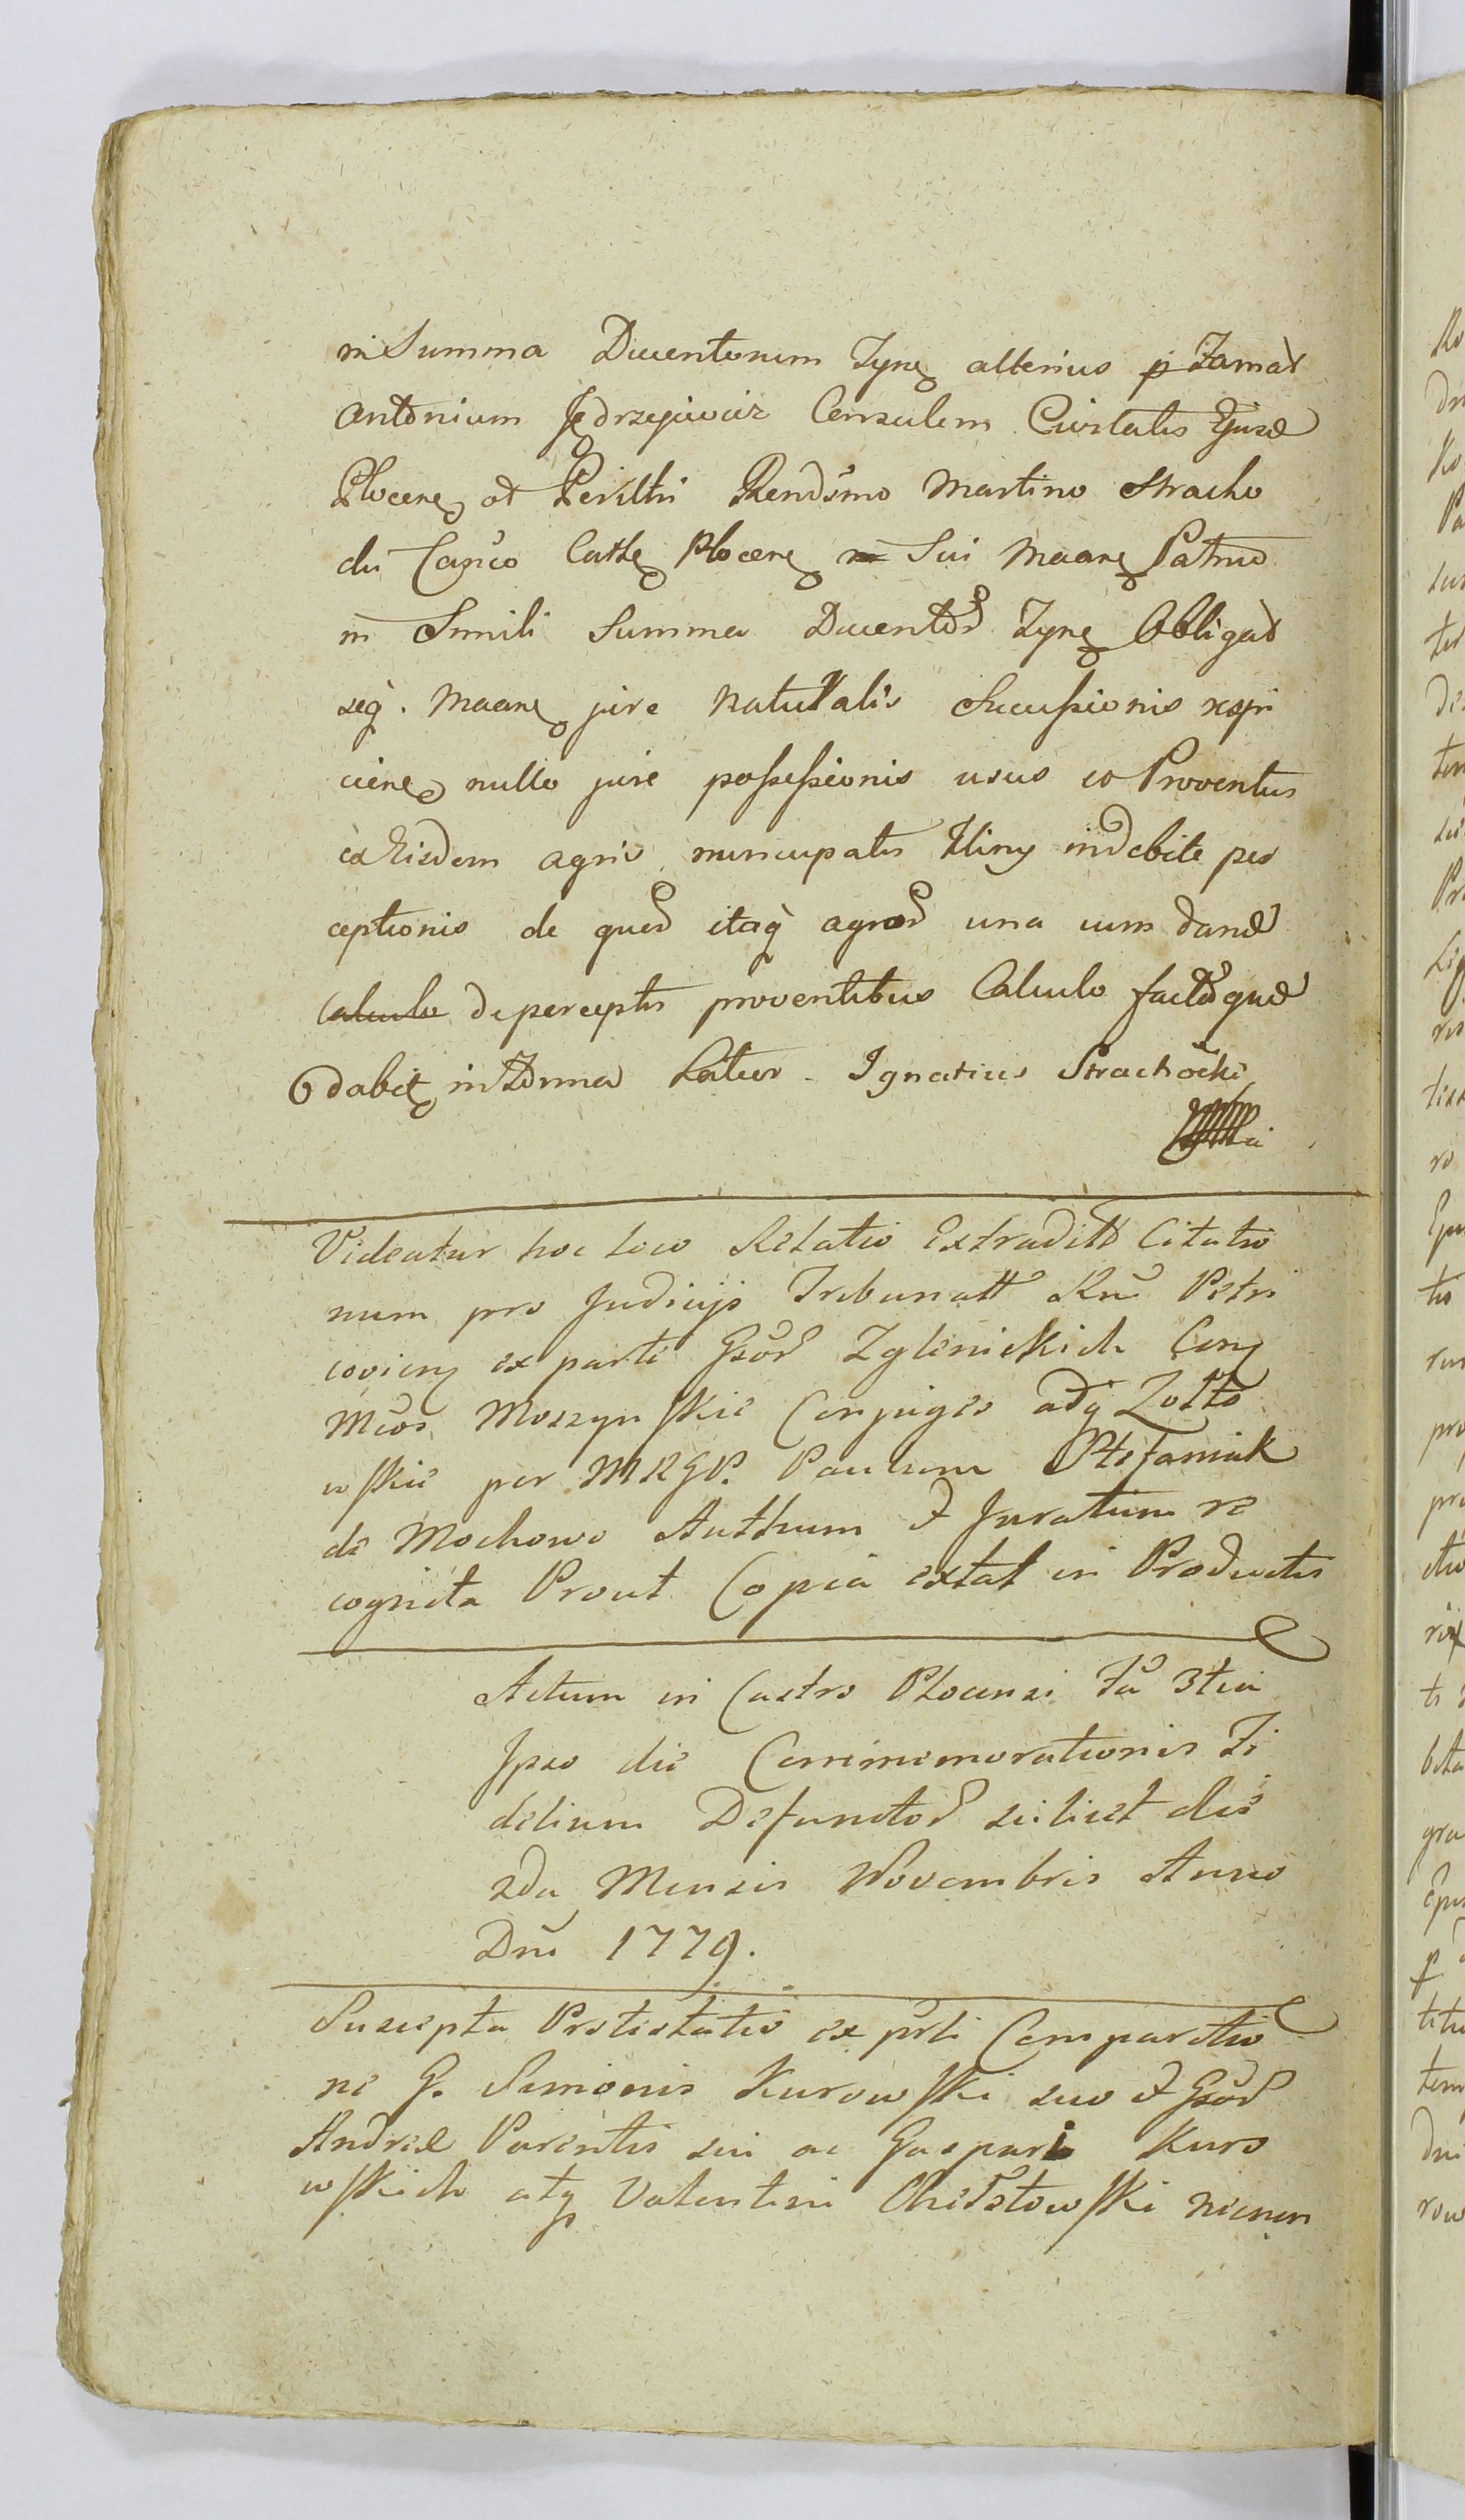 in Summa Ducentorum Tynf alterius p Famat
Antonium Jędrzejiwicz Consulem Civitatis Ejusd
Plocen et Perillri Rendsmo Martino Stracho
cki Canco Cathe Plocen Sui Maane Patruo
in Simili Summa Ducentor Tynf Obligat
seq. Maane jure naturalis Sucessionis respi
cien nullo jure possessionis usus et Proventus
ex Eisdem agris nuncupatis Kliny indebite per
ceptionis de quor itaq agror una cum dand
Calculo de perceptis proventibus Calculo factoque
dabit in Forma Latior. Ignatius Strachocki
Videatur hoc loco Relatio Extraditt Citatio
num pro Judicijs Tribunatt Rni Petri
covien ex parte Gsor Zglinickich Conj
Mcos Moszynskie Conjuges adq Zołto
wskie per MRGP. Paulum Stefaniak
de Mochowo Authum et Juratum re
cognita Prout Copia extat in Productis
Actum in Castro Plocensi Fa 3tia
Ipso die Commemorationis Fi
delium Defunctor scilicet die
2da Mensis Novembris Anno
Dni 1779.
Suscepta Protestatio ex prti Comparitio
ne G. Simonis Kurowski suo et Gsor
Andreæ Parentis sui ac Gaspari Kuro
wskich atq Valentini Chełstowski nicnon